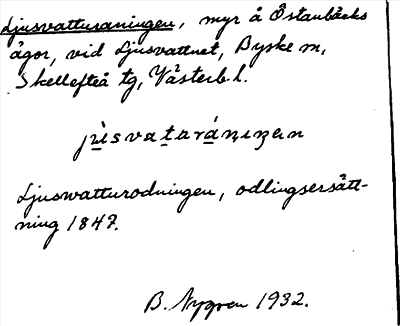 Ljusvattusraningen, myr å Östanbäcks
ägor, vid Ljusvattnet, Byske sn,
Skellefteå tg, Västerb. l.
Ljusvatturodningen, odlingsersätt-
ning 1847.
B. Nygren 1932.